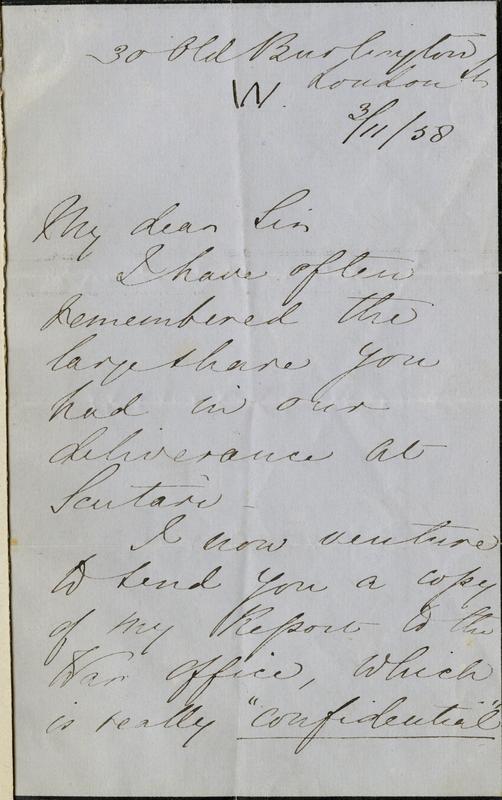 30 Old Burlington St
London
W.
3/11/58
My dear Sir
I have often
remembered the
large share you
had in our
deliverance at
Scutari -
I now venture
to send you a copy
of my Report to the
War Office, which
is really "confidential"